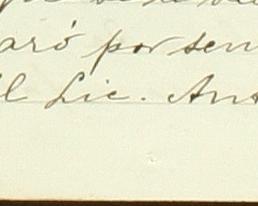 aró por sen
l Lic. Ant